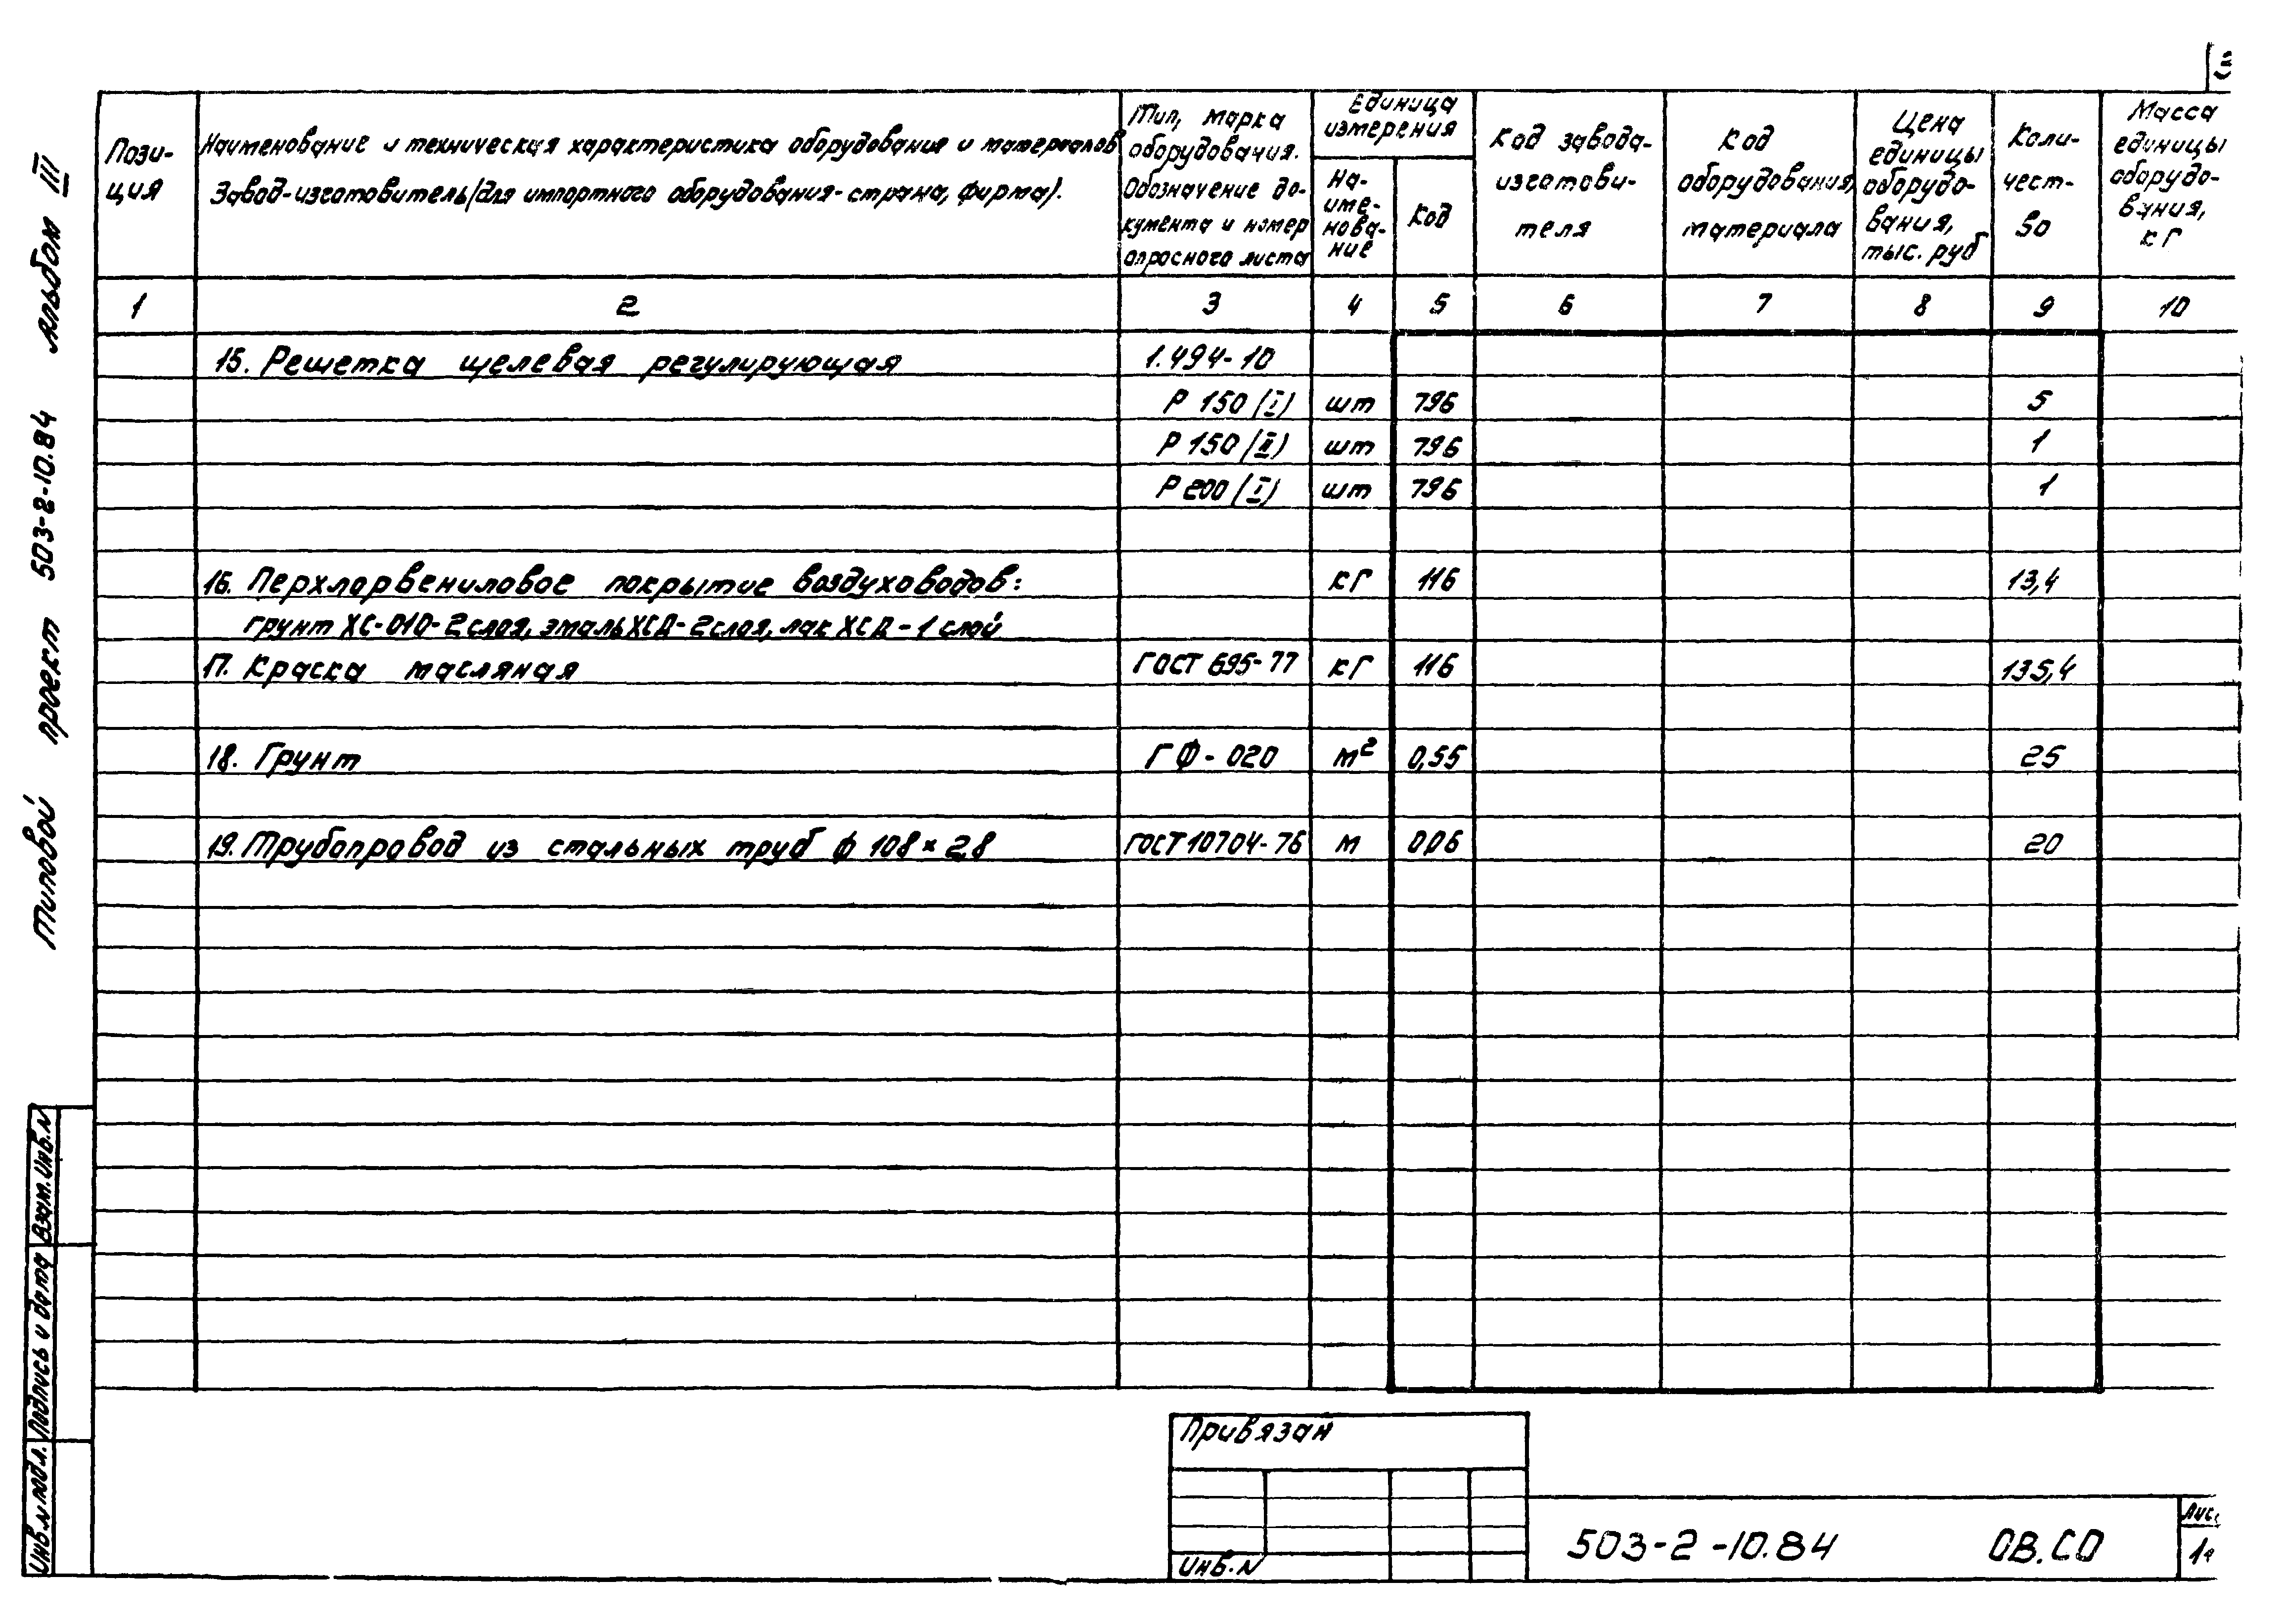 Типовой проект 503-2-10.84 Альбом III
Пози-
ция
Наименование и техническая характеристика оборудование и материалов
Завод-изготовитель (для импортного оборудования - страна, фирма).
Тип, марка
оборудования.
Обозначение до-
кумента и номер
опросного листа
Единица
измерения
На-
име-
нова-
ние
Код
Код завода-
изготови-
теля
Код
оборудования,
материала
Цена
единицы
оборудо-
вания,
тыс. руб
Коли-
чест-
во
Масса
единицы
оборудо-
вания,
кг
1 2 3 4 5 6 7 8 9 10
15. Решетка щелевая регулирующая 1.494-10
Р 150 (I) шт 796 5
Р 150 (II) шт 796 1
Р 200 (I) шт 796 1
16. Перхлорвениловое покрытие воздуховодов: кг 116 13,4
грунт ХС-010-2слоя, эмаль ХСД-2слоя, лак ХСД-1 слой
17. Краска масляная ГОСТ 695-77 кг 116 135,4
18. Грунт ГФ-020 м² 0,55 25
19. Трубопровод из стальных труб ф 108×2,8 ГОСТ 10704-76 м 006 20
Взам. Инв. N
Подпись и дата
Инв. N подл.
Привязан
Инв. N
503-2-10.84 ОВ.СО